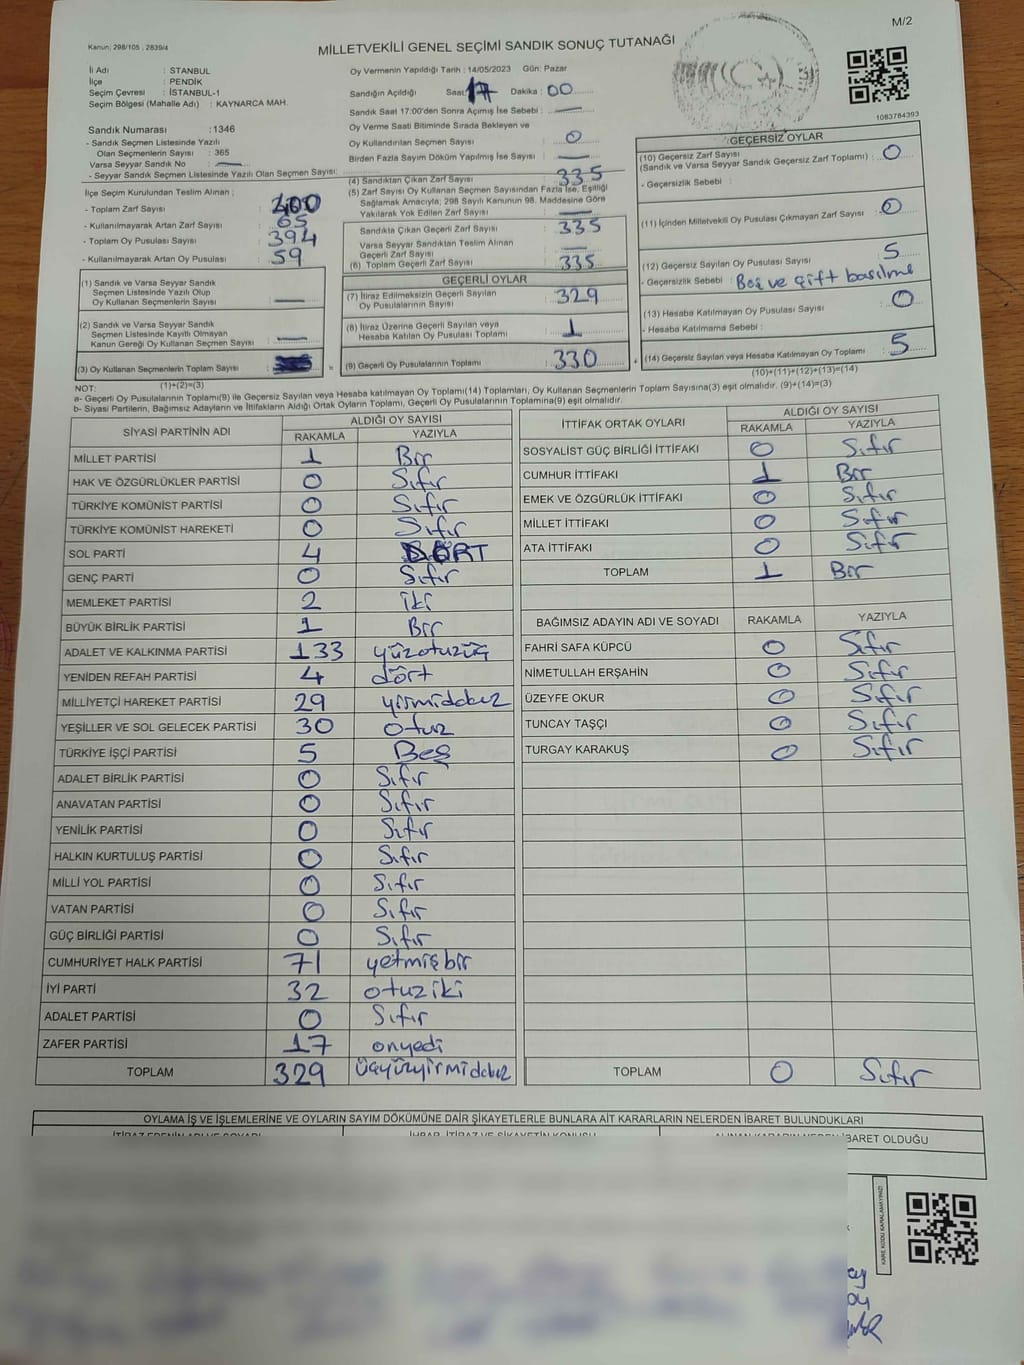 M/2
Kanun; 298/105 , 2839/4
MİLLETVEKİLİ GENEL SEÇİMİ SANDIK SONUÇ TUTANAĞI
İl Adı : İSTANBUL
İlçe : PENDİK
Seçim Çevresi : İSTANBUL-1
Seçim Bölgesi (Mahalle Adı) : KAYNARCA MAH.
Sandık Numarası : 1346
- Sandık Seçmen Listesinde Yazılı
Olan Seçmenlerin Sayısı : 365
Varsa Seyyar Sandık No : —
- Seyyar Sandık Seçmen Listesinde Yazılı Olan Seçmen Sayısı:
Oy Vermenin Yapıldığı Tarih : 14/05/2023 Gün: Pazar
Sandığın Açıldığı Saat: 17 Dakika : 00
Sandık Saat 17:00'den Sonra Açımış İse Sebebi : —
Oy Verme Saati Bitiminde Sırada Bekleyen ve
Oy Kullandırılan Seçmen Sayısı : 0
Birden Fazla Sayım Döküm Yapılmış İse Sayısı : —
1083784393
İlçe Seçim Kurulundan Teslim Alınan ;
- Toplam Zarf Sayısı : 400
- Kullanılmayarak Artan Zarf Sayısı : 65
- Toplam Oy Pusulası Sayısı : 394
- Kullanılmayarak Artan Oy Pusulası : 59
(1) Sandık ve Varsa Seyyar Sandık
Seçmen Listesinde Yazılı Olup
Oy Kullanan Seçmenlerin Sayısı : —
(2) Sandık ve Varsa Seyyar Sandık
Seçmen Listesinde Kayıtlı Olmayan
Kanun Gereği Oy Kullanan Seçmen Sayısı : —
(3) Oy Kullanan Seçmenlerin Toplam Sayısı :
(4) Sandıktan Çıkan Zarf Sayısı : 335
(5) Zarf Sayısı Oy Kullanan Seçmen Sayısından Fazla İse, Eşitliği
Sağlamak Amacıyla; 298 Sayılı Kanunun 98. Maddesine Göre
Yakılarak Yok Edilen Zarf Sayısı : —
Sandıkta Çıkan Geçerli Zarf Sayısı : 335
Varsa Seyyar Sandıktan Teslim Alınan
Geçerli Zarf Sayısı : —
(6) Toplam Geçerli Zarf Sayısı : 335
GEÇERLİ OYLAR
(7) İtiraz Edilmeksizin Geçerli Sayılan
Oy Pusulalarının Sayısı : 329
(8) İtiraz Üzerine Geçerli Sayılan veya
Hesaba Katılan Oy Pusulası Toplamı : 1
(9) Geçerli Oy Pusulalarının Toplamı : 330
GEÇERSİZ OYLAR
(10) Geçersiz Zarf Sayısı
(Sandık ve Varsa Seyyar Sandık Geçersiz Zarf Toplamı) : 0
- Geçersizlik Sebebi :
(11) İçinden Milletvekili Oy Pusulası Çıkmayan Zarf Sayısı : 0
(12) Geçersiz Sayılan Oy Pusulası Sayısı : 5
- Geçersizlik Sebebi : Boş ve çift basılma
(13) Hesaba Katılmayan Oy Pusulası Sayısı : 0
- Hesaba Katılmama Sebebi :
(14) Geçersiz Sayılan veya Hesaba Katılmayan Oy Toplamı : 5
NOT: (1)+(2)=(3) (10)+(11)+(12)+(13)=(14)
a- Geçerli Oy Pusulalarının Toplamı(9) ile Geçersiz Sayılan veya Hesaba katılmayan Oy Toplamı(14) Toplamları, Oy Kullanan Seçmenlerin Toplam Sayısına(3) eşit olmalıdır. (9)+(14)=(3)
b- Siyasi Partilerin, Bağımsız Adayların ve İttifakların Aldığı Ortak Oyların Toplamı, Geçerli Oy Pusulalarının Toplamına(9) eşit olmalıdır.
SİYASİ PARTİNİN ADI ALDIĞI OY SAYISI
RAKAMLA YAZIYLA
MİLLET PARTİSİ 1 Bir
HAK VE ÖZGÜRLÜKLER PARTİSİ 0 Sıfır
TÜRKİYE KOMÜNİST PARTİSİ 0 Sıfır
TÜRKİYE KOMÜNİST HAREKETİ 0 Sıfır
SOL PARTİ 4 DÖRT
GENÇ PARTİ 0 Sıfır
MEMLEKET PARTİSİ 2 iki
BÜYÜK BİRLİK PARTİSİ 1 Bir
ADALET VE KALKINMA PARTİSİ 133 yüzotuzüç
YENİDEN REFAH PARTİSİ 4 dört
MİLLİYETÇİ HAREKET PARTİSİ 29 yirmidokuz
YEŞİLLER VE SOL GELECEK PARTİSİ 30 otuz
TÜRKİYE İŞÇİ PARTİSİ 5 Beş
ADALET BİRLİK PARTİSİ 0 Sıfır
ANAVATAN PARTİSİ 0 Sıfır
YENİLİK PARTİSİ 0 Sıfır
HALKIN KURTULUŞ PARTİSİ 0 Sıfır
MİLLİ YOL PARTİSİ 0 Sıfır
VATAN PARTİSİ 0 Sıfır
GÜÇ BİRLİĞİ PARTİSİ 0 Sıfır
CUMHURİYET HALK PARTİSİ 71 yetmişbir
İYİ PARTİ 32 otuziki
ADALET PARTİSİ 0 Sıfır
ZAFER PARTİSİ 17 onyedi
TOPLAM 329 üçyüzyirmidokuz
İTTİFAK ORTAK OYLARI ALDIĞI OY SAYISI
RAKAMLA YAZIYLA
SOSYALİST GÜÇ BİRLİĞİ İTTİFAKI 0 Sıfır
CUMHUR İTTİFAKI 1 Bir
EMEK VE ÖZGÜRLÜK İTTİFAKI 0 Sıfır
MİLLET İTTİFAKI 0 Sıfır
ATA İTTİFAKI 0 Sıfır
TOPLAM 1 Bir
BAĞIMSIZ ADAYIN ADI VE SOYADI RAKAMLA YAZIYLA
FAHRİ SAFA KÜPCÜ 0 Sıfır
NİMETULLAH ERŞAHİN 0 Sıfır
ÜZEYFE OKUR 0 Sıfır
TUNCAY TAŞÇI 0 Sıfır
TURGAY KARAKUŞ 0 Sıfır
TOPLAM 0 Sıfır
OYLAMA İŞ VE İŞLEMLERİNE VE OYLARIN SAYIM DÖKÜMÜNE DAİR ŞİKAYETLERLE BUNLARA AİT KARARLARIN NELERDEN İBARET BULUNDUKLARI
İBARET OLDUĞU
KARE KODU KARALAMAYINIZ!